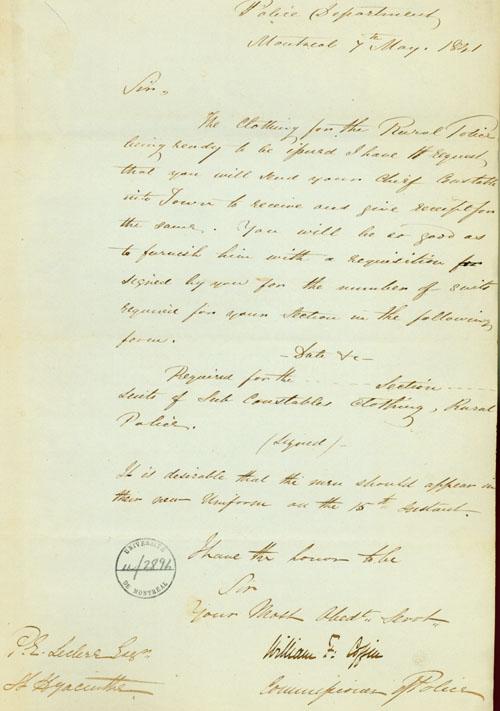 Police Department
Montreal 7th May. 1841
Sir,
The Clothing for the Rural Police
being ready to be issued I have to request
that you will send your Chief Constable
into Town to receive and give receipt for
the same. You will be so good as
to furnish him with a requisition for
signed by you for the number of suits
required for your Section in the following
form.
- Date &c -
Required for the Section
Suits of Sub Constables Clothing, Rural
Police.
(Signed) -
It is desirable that the men should appear in
their new Uniform on the 15th Instant.
I have the honor to be
Sir
Your Most Obedt. Servt.
William F. Coffin
Commissioner of Police
P.E. Leclere Esqr.
St Hyacinthe
UNIVERSITÉ
DE MONTRÉAL